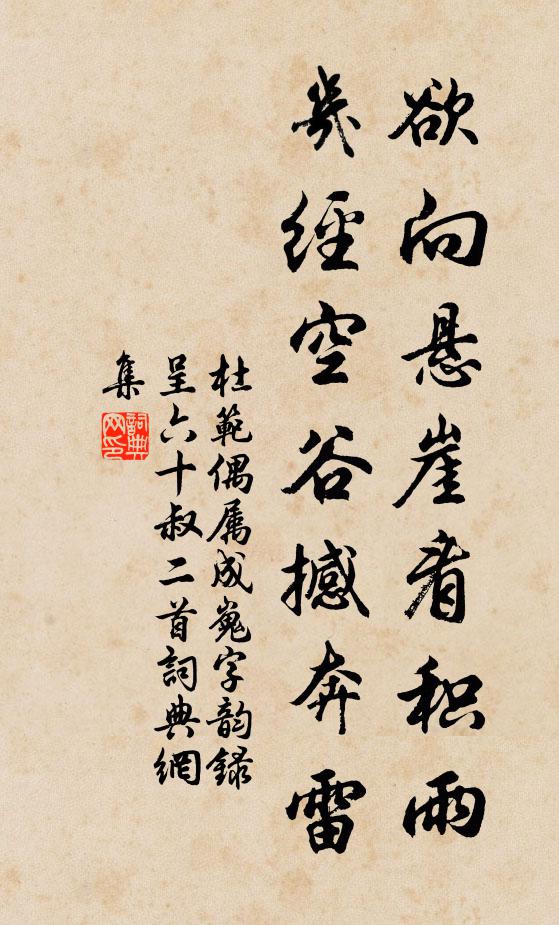 欲向悬崖看积雨
几经空谷撼奔雷
杜範偶属成嵬字韵録
呈六十叔二首詞典網
集
詞典网印